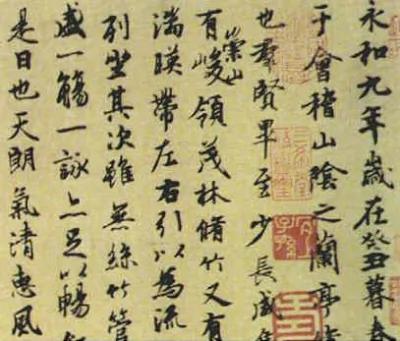 永和九年歲在癸丑暮春
于會稽山陰之蘭亭脩
也羣賢畢至少長咸集
有崇山峻領茂林脩竹又有
湍暎帶左右引以為流
列坐其次雖無絲竹管
盛一觴一詠亦足以暢
是日也天朗氣清惠風